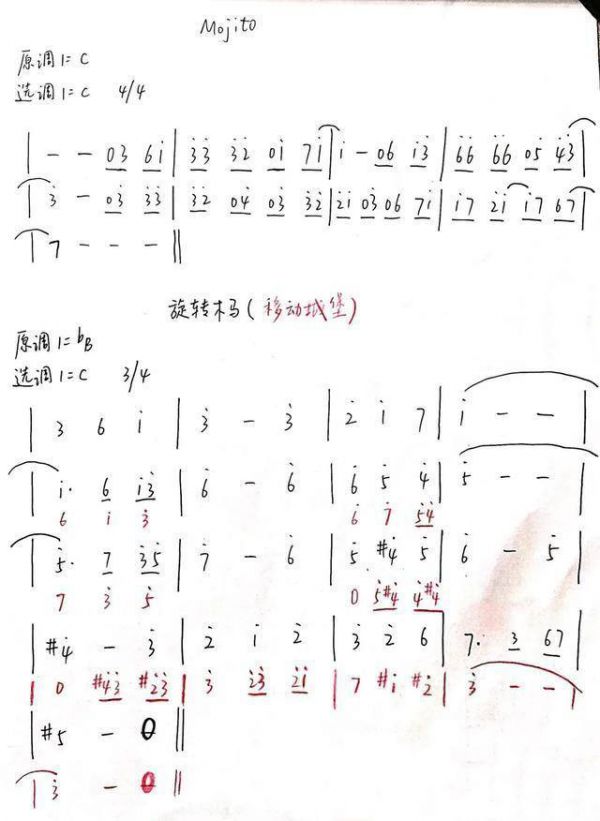 Mojito
原调 1=C
选调 1=C 4/4
| - - 03 6i | 3̇3̇ 3̇2̇ 0i 7i | i - 06 i3̇ | 6̇6̇ 6̇6̇ 05̇ 4̇3̇ |
| 3̇ - 03̇ 3̇3̇ | 3̇2̇ 04̇ 03̇ 3̇2̇ | 2̇i 03̇ 06 7i | i7 2̇i i7 67 |
| 7 - - - ||
旋转木马(移动城堡)
原调 1=bB
选调 1=C 3/4
| 3 6 i | 3̇ - 3̇ | 2̇ i 7 | i - - |
| i· 6 i3̇ | 6̇ - 6̇ | 6̇ 5̇ 4̇ | 5̇ - - |
6 i 3̇ 6̇ 7̇ 5̇4̇
| 5̇· 7 3̇5̇ | 7̇ - 6̇ | 5̇ #4̇ 5̇ | 6̇ - 5̇ |
7 3̇ 5̇ 0 5̇#4̇ 4̇#4̇
| #4̇ - 3̇ | 2̇ i 2̇ | 3̇ 2̇ 6 | 7· 3 67 |
| 0 #4̇3̇ #2̇3̇ | 3̇ 2̇3̇ 2̇i | 7 #i #2̇ | 3̇ - - |
| #5 - 0 ||
| 3̇ - 0 ||